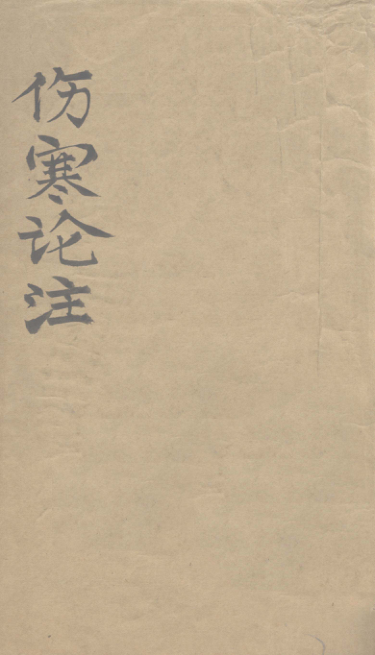 伤寒论注